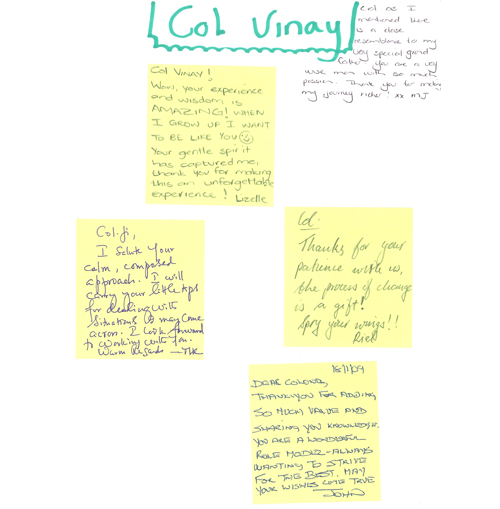 Col Vinay
Col as I
mentioned there
is a close
resemblance to my
very special grand
father you are a very
wise man with so much
passion. Thank you for making
my journey richer! xx MJ
Col VINAY!
Wow, your experience
and wisdom is
AMAZING! WHEN
I GROW UP I WANT
TO BE LIKE YOU
Your gentle spirit
has captured me,
thank you for making
this an unforgettable
experience! Lizelle
Col. Ji,
I Salute your
calm, composed
approach. I will
carry your little tips
for dealing with
situations may come
across. I look forward
to working with you.
Warm Regards
Col.
Thanks for your
patience with us,
the process of change
is a gift!
your wings!!
16/11/09
DEAR COLONEL,
THANKYOU FOR ADDING
SO MUCH VALUE AND
SHARING YOU KNOWLEDGE.
YOU ARE A WONDERFUL
ROLE MODEL - ALWAYS
WANTING TO STRIVE
FOR THE BEST. MAY
YOUR WISHES COME TRUE
JOHN